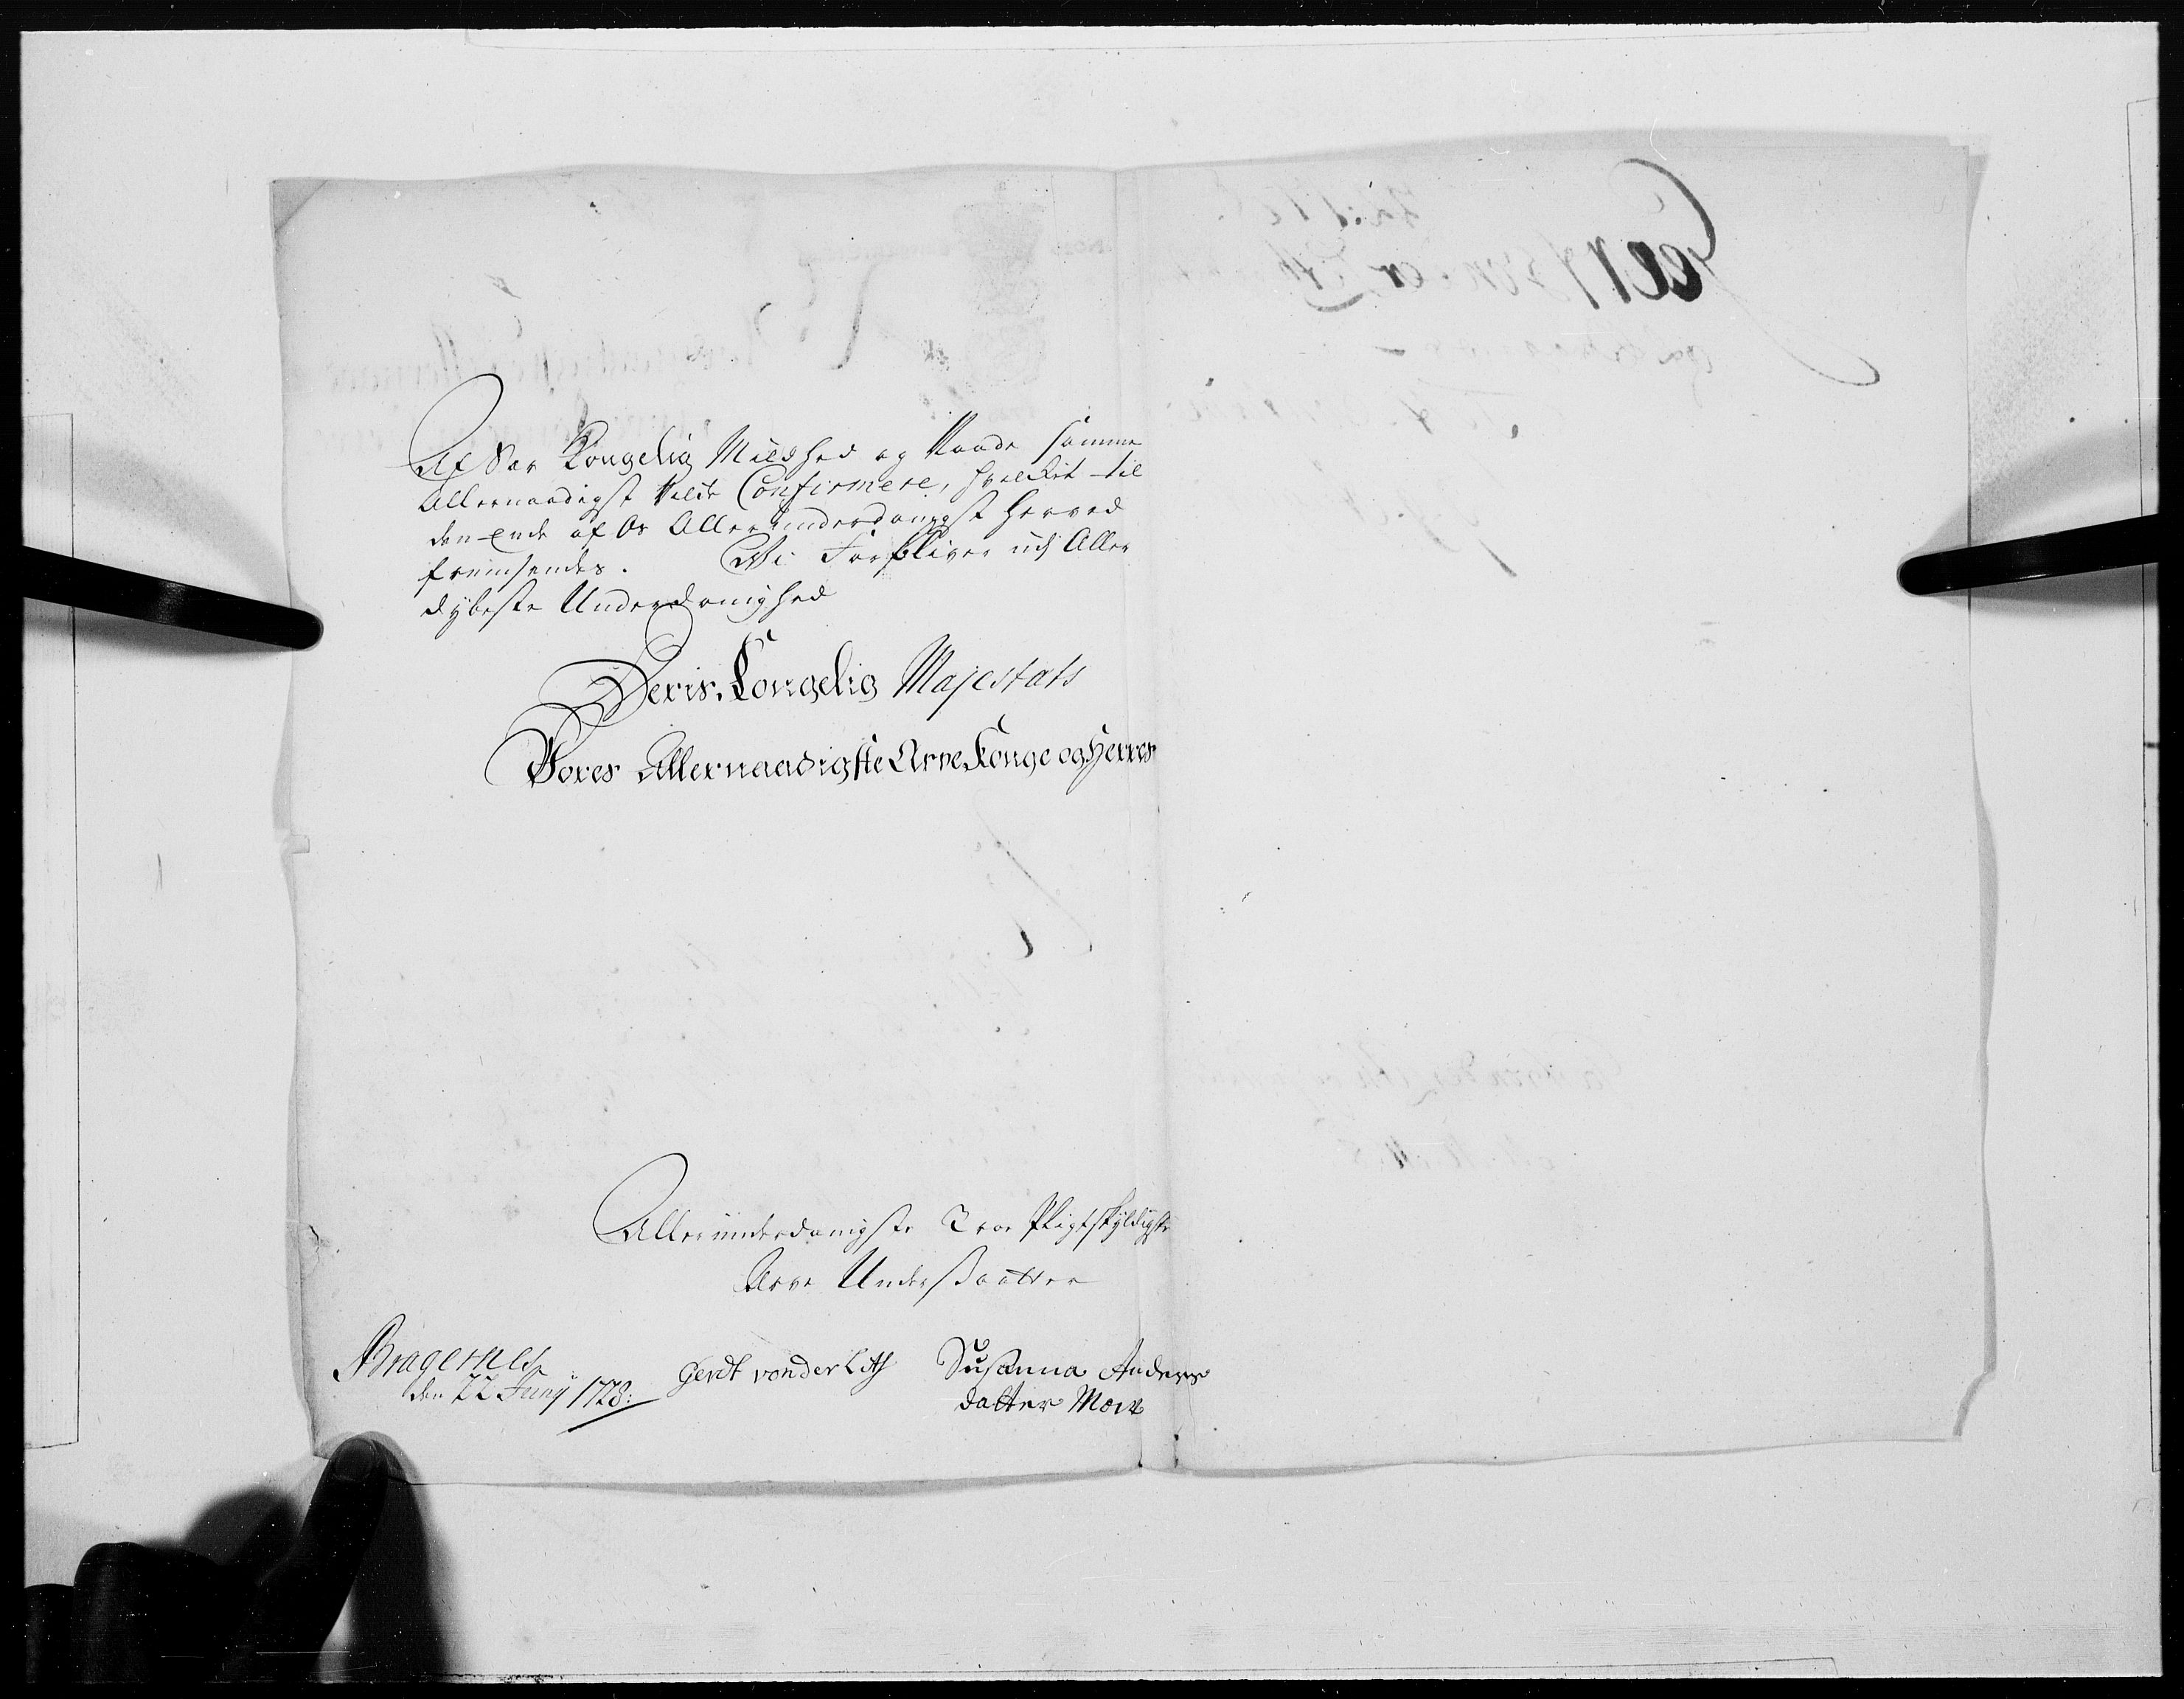 Af Sær Kongelig Mildhed og Naade samme
Allernaadigst Vilde Confirmere, hvilcket til
den Ende af Os Allerunderdanigst herved
fremsendes. Wi Forbliver udj Aller
dybeste Underdanighed
Deris Kongelig Majestæts
Vores Allernaadigste Arve Konge og Herres
Allerunderdanigste Troe Pligtskyldigste
Arve Undersaatter
Bragernes
den 22 Junij 1728:
Gerdt von der Lith
Susanna Anders
datter Moer